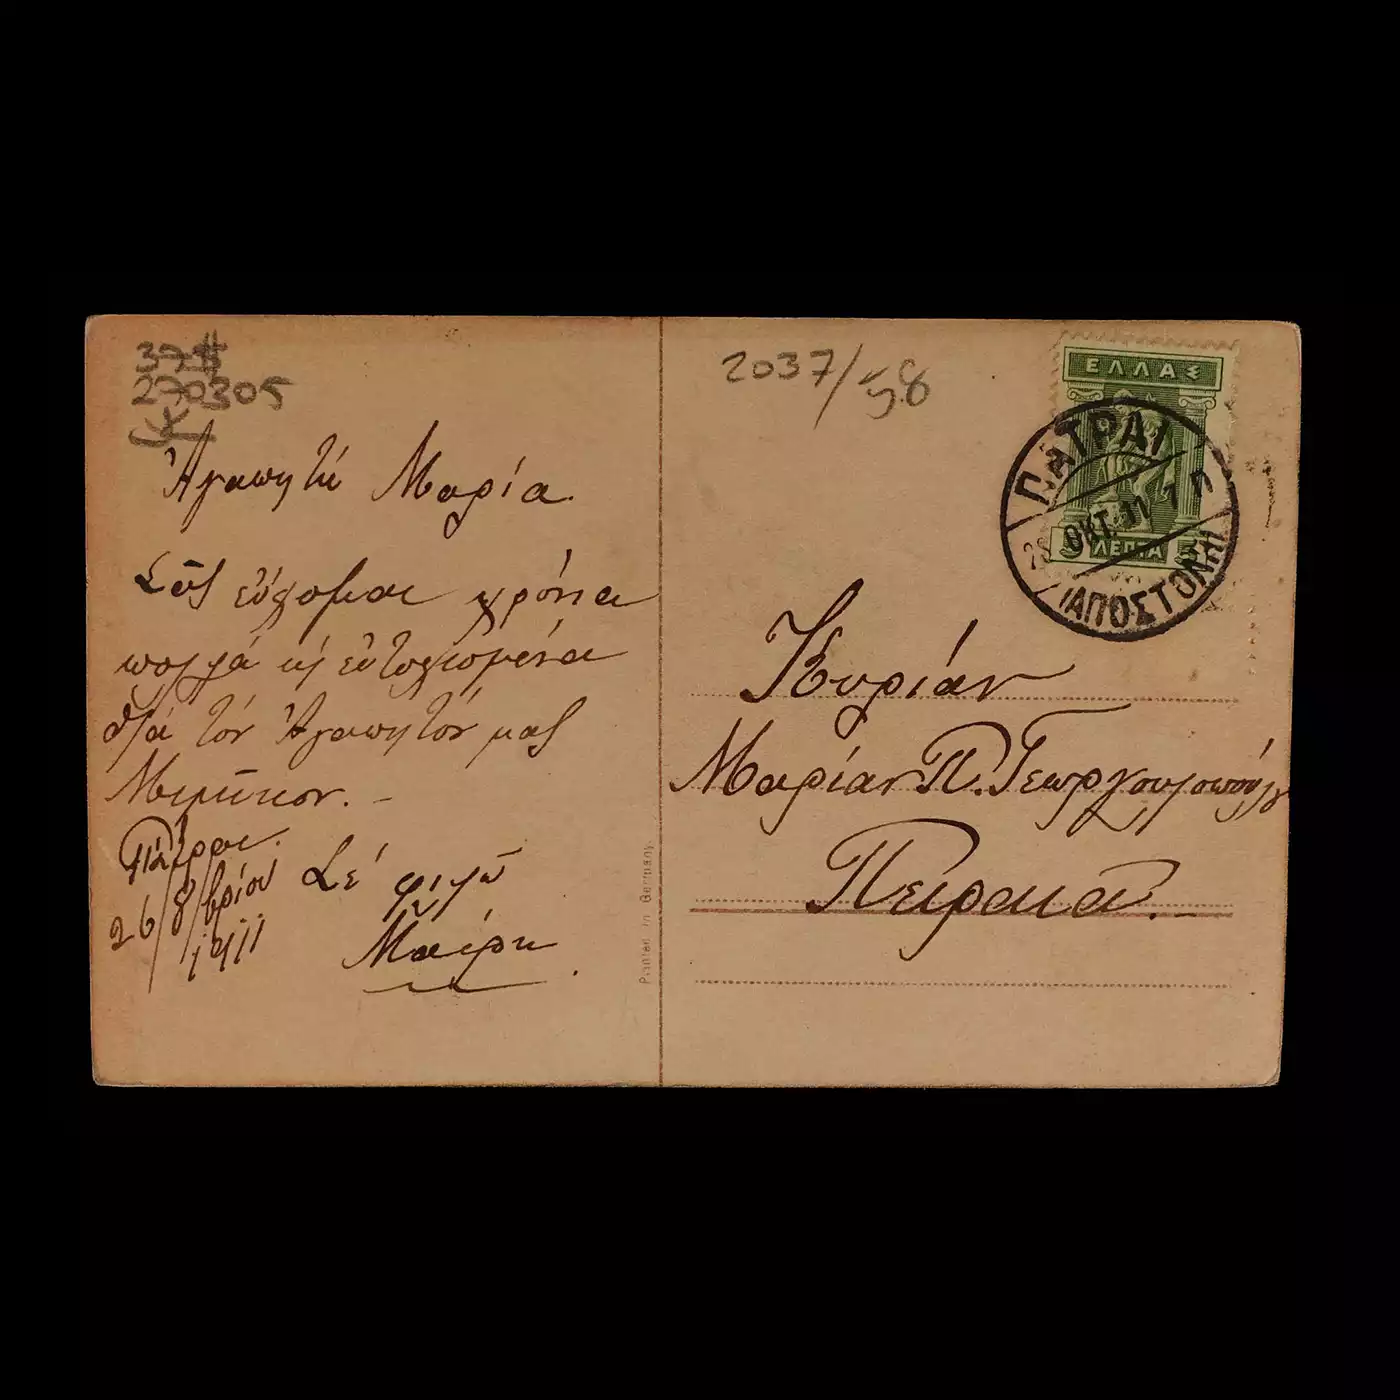 37#
270305
Ἀγαπητὴ Μαρία.
Σᾶς εὔχομαι χρόνια
πολλὰ κὶ εὐτυχισμένα
διά τόν Ἀγαπητόν μας
Μιμῖκον. -
Πάτραι
26/8/βρίου
1911
Σέ φιλῶ
Μαίρη
Printed in Germany
2037/58
ΕΛΛΑΣ
ΠΑΤΡΑΙ
ΟΚΤ. 11 7 Π
5 ΛΕΠΤΑ 5
ΑΠΟΣΤΟΛΗ
Κυρίαν
Μαρίαν Π. Γεωργουλοπούλου
Πειραιᾶ. -